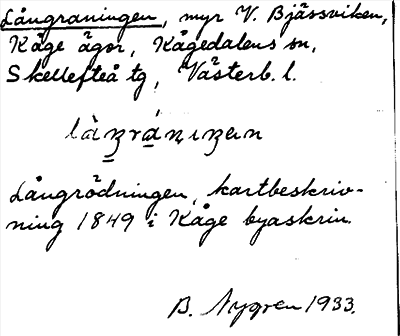 Långraningen, myr V. Bjässviken,
Kåge ägor, Kågedalens sn,
Skellefteå tg, Västerb. l.
Långrödningen, kartbeskriv-
ning 1849 i Kåge byaskrin.
B. Nygren 1933.